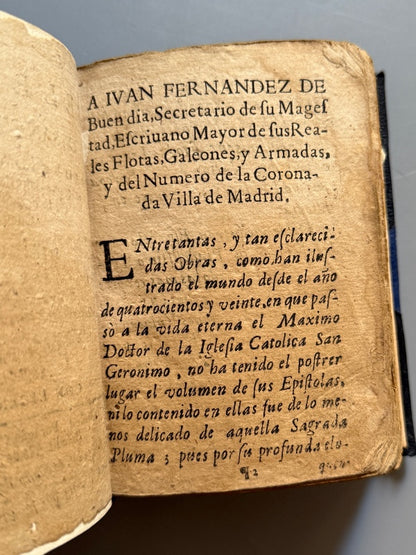 A IVAN FERNANDEZ DE
Buen dia, Secretario de ſu Mageſ
tad, Eſcriuano Mayor de ſus Rea-
les Flotas, Galeones, y Armadas,
y del Numero de la Corona-
da Villa de Madrid.
ENtre tantas, y tan eſclareci-
das Obras, como han iluſ-
trado el mundo deſde el año
de quatrocientos y veinte, en que paſ-
sò a la vida eterna el Maximo
Doctor de la Igleſia Catolica San
Geronimo, no ha tenido el poſtrer
lugar el volumen de ſus Epiſtolas,
ni lo contenido en ellas fue de lo me-
nos delicado de aquella Sagrada
Pluma; pues por ſu profunda elo-
¶2